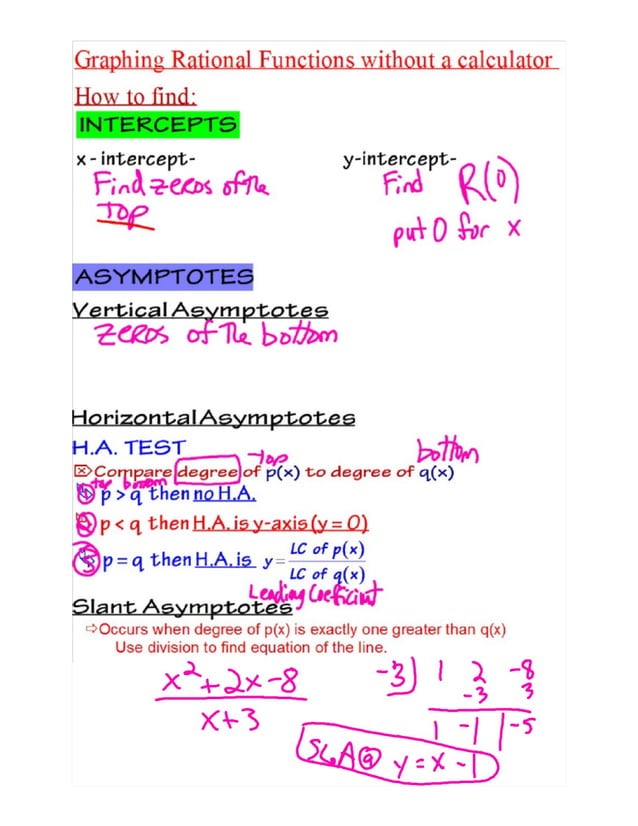 Graphing Rational Functions without a calculator
How to find:
INTERCEPTS
x - intercept-
y-intercept-
Find zeros of the
Top
Find R(0)
put 0 for x
ASYMPTOTES
Vertical Asymptotes
zeros of the bottom
Horizontal Asymptotes
H.A. TEST
top
bottom
Compare degree of p(x) to degree of q(x)
top bottom
p > q then no H.A.
p < q then H.A. is y-axis (y = 0)
p = q then H.A. is y = LC of p(x)
LC of q(x)
Leading Coefficient
Slant Asymptotes
⇨Occurs when degree of p(x) is exactly one greater than q(x)
Use division to find equation of the line.
x² + 2x - 8
x + 3
-3) 1 2 -8
-3 3
1 -1 | -5
y = x - 1